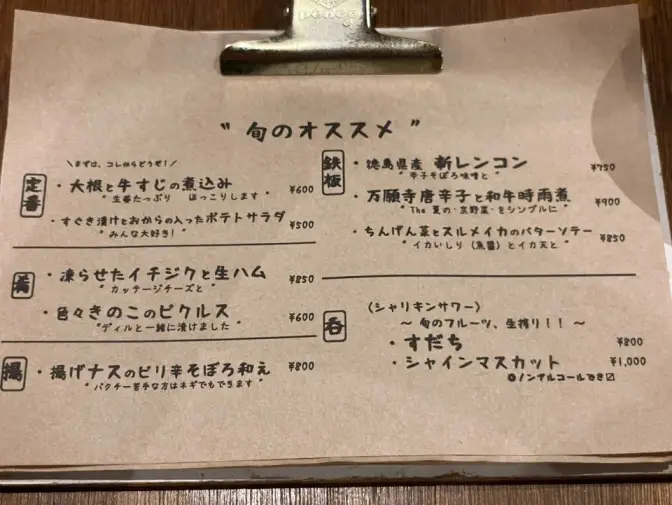 " 旬のオススメ "
\ まずは、コレからどうぞ! /
定番
・大根と牛すじの煮込み ¥600
" 生姜たっぷり ほっこりします "
・すぐき漬けとおからの入ったポテトサラダ ¥500
" みんな大好き! "
肴
・凍らせたイチジクと生ハム ¥850
" カッテージチーズと "
・色々きのこのピクルス ¥600
" ディルと一緒に漬けました "
揚
・揚げナスのピリ辛そぼろ和え ¥800
" パクチー苦手な方はネギでもできます "
鉄板
・徳島県産 新レンコン ¥750
" 辛子そぼろ味噌と "
・万願寺唐辛子と和牛時雨煮 ¥900
" The 夏の・京野菜・をシンプルに "
・ちんげん菜とスルメイカのバターソテー ¥850
" イカいしり(魚醤)とイカ天と "
呑
(シャリキンサワー)
〜 旬のフルーツ、生搾り!! 〜
・すだち ¥800
・シャインマスカット ¥1,000
ノンアルコールでき〼